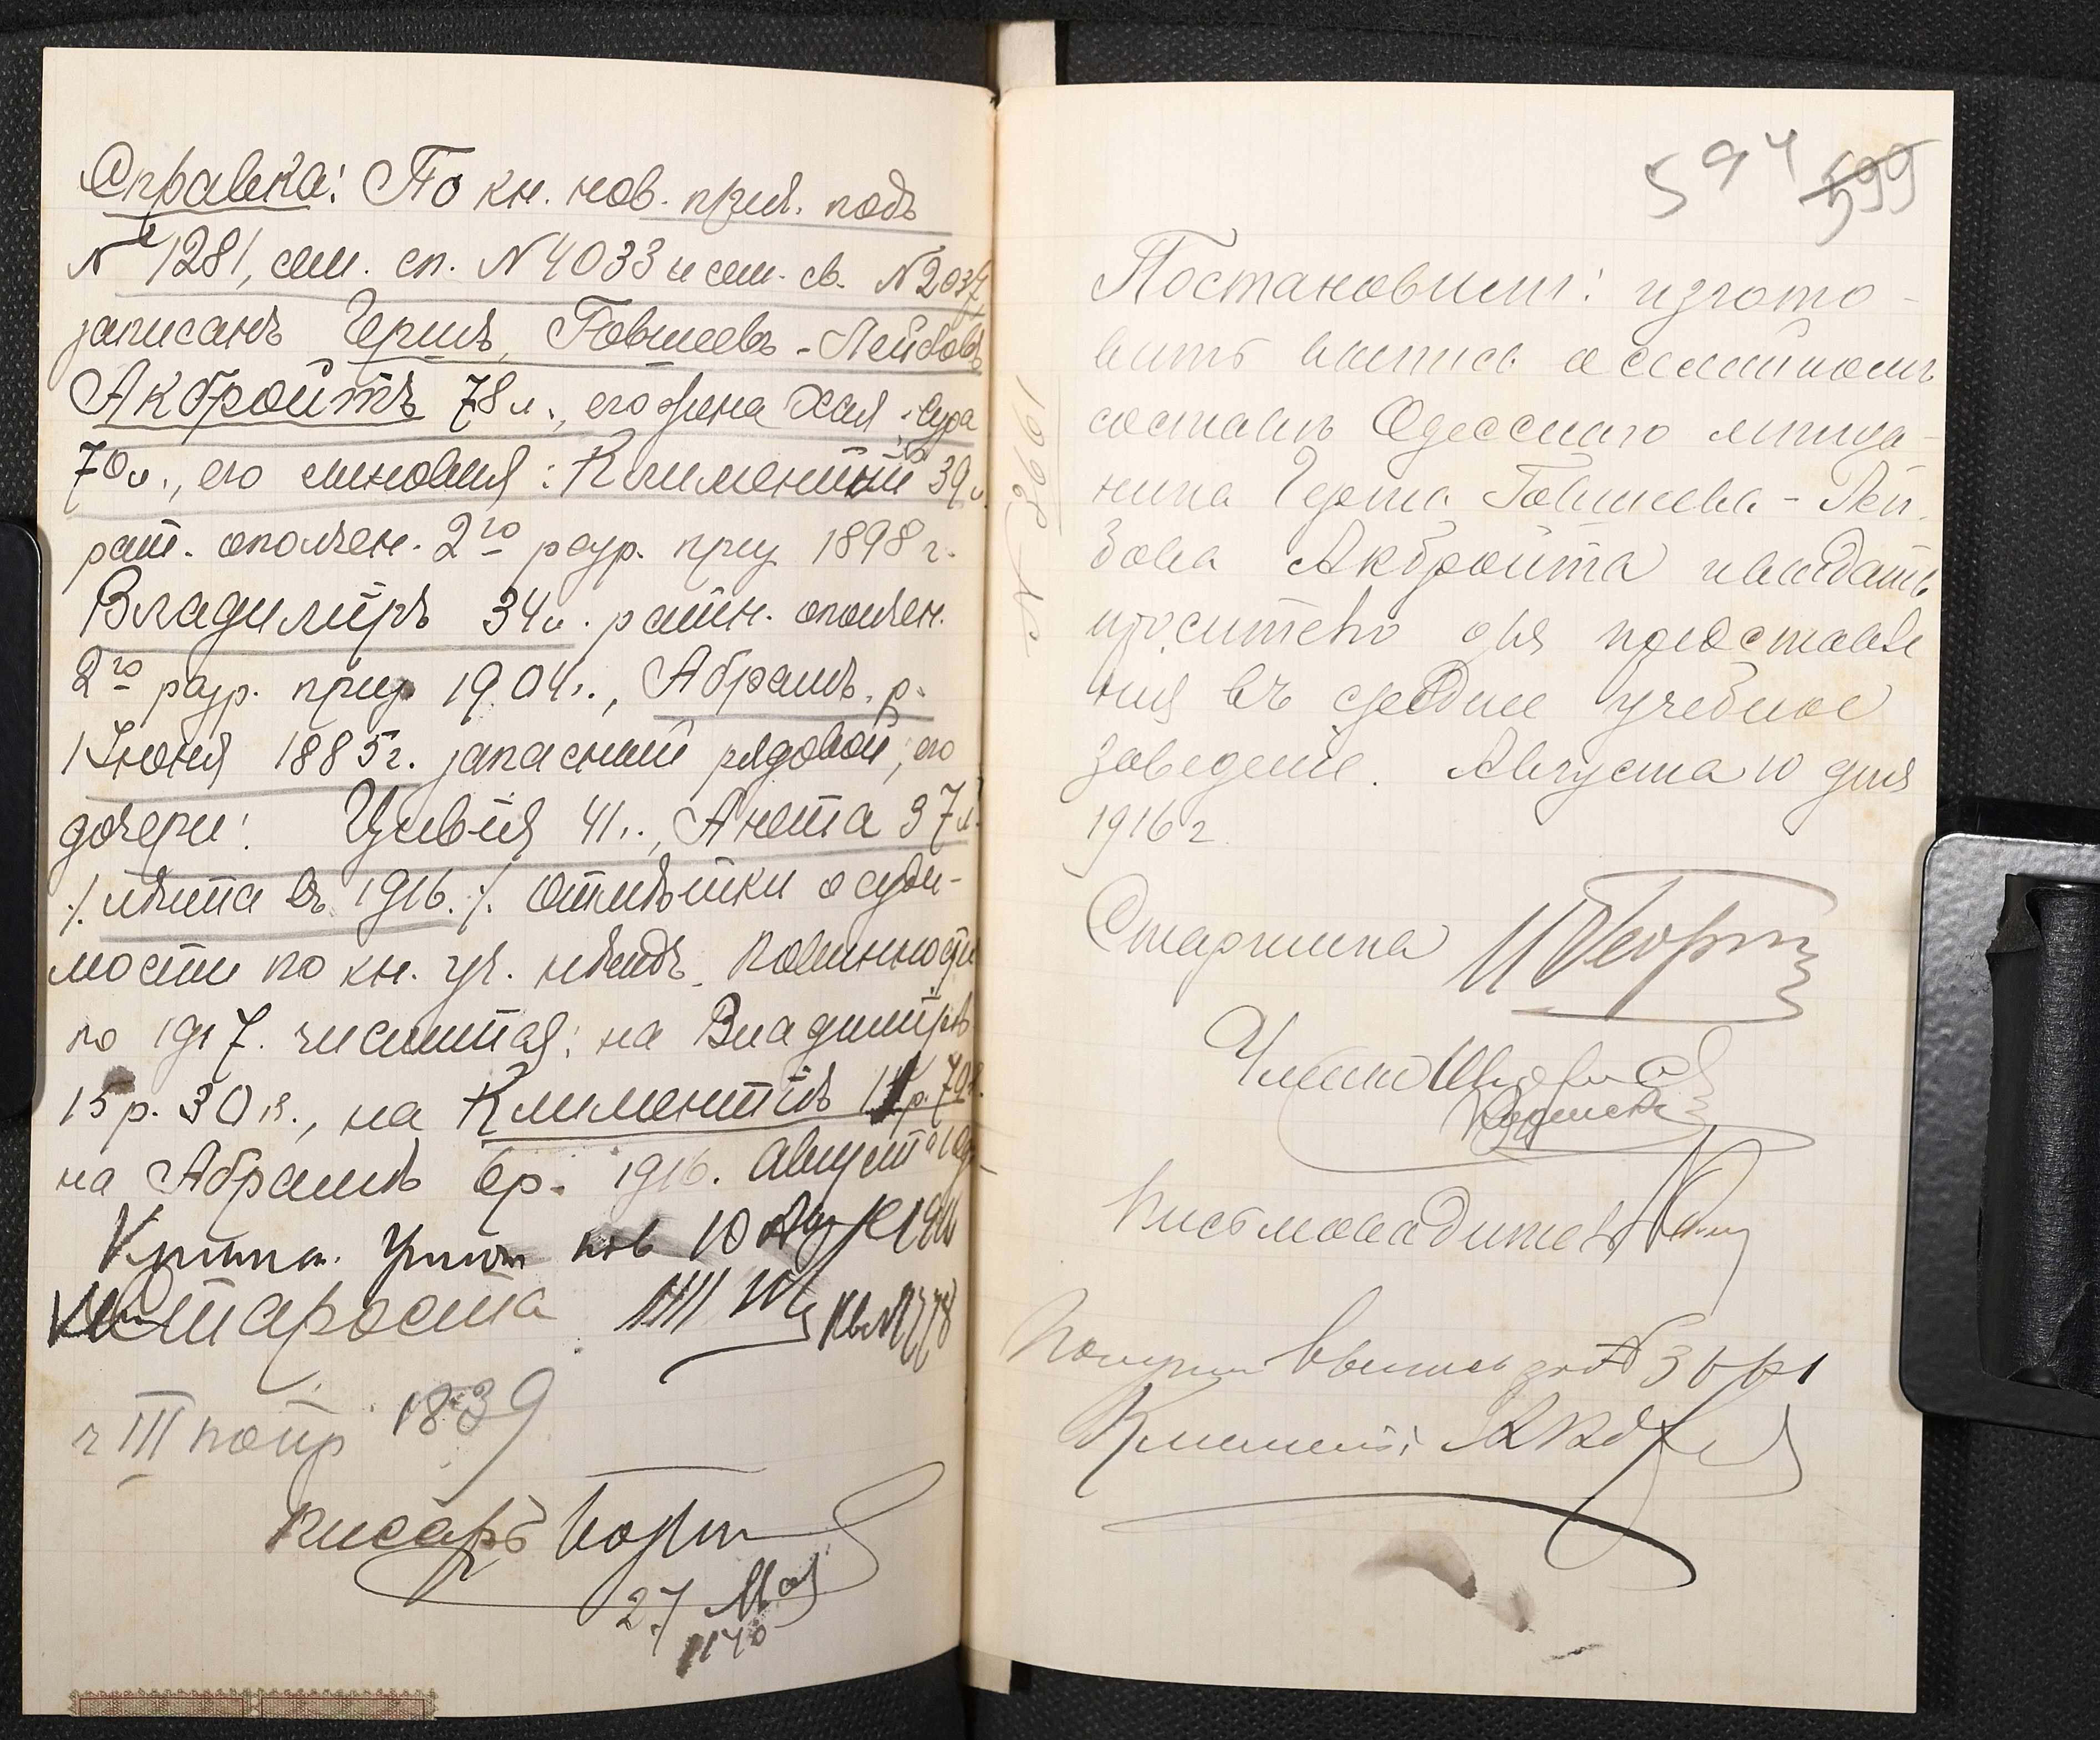 Справка: По кн. нов. прил. подъ
№ 1281, сем. сп. № 4033 и сем. св. № 2034
записанъ Гершъ Говшеевъ-Лейбовъ
Акбройтъ 78 л., его жена Хая-Сура
70 л., его сыновья: Климентій 39 л.
рат. ополчен. 2го разр. приз. 1898 г.
Владиміръ 34 л. ратн. ополчен.
2го разр. приз. 1904 г., Абрамъ р.
1 Іюня 1885 г. запасный рядовой, его
дочери: Цивія 41 г., Анета 37 л.
./. лѣта въ 1916 ./. Отмѣтки о суди-
мости по кн. уч. нѣтъ. Повинности
по 1917. числится: на Владимірѣ
15 р. 30 к., на Климентіѣ р. 70 к.
на Абрамѣ 6 р. 1916. Августа 10 дня
10
Староста
ч III 1839
Писарь
27 Мая
594 599
Постановили: изгото-
вить выпись о семейномъ
составѣ Одесскаго мѣща-
нина Герша Говшеева-Лей-
бова Акбройта и выдать
просителю для представле
нія въ среднее учебное
заведеніе. Августа 10 дня
1916 г.
№ 3661
Старшина
Письмоводитель
Получил выпись за № 3661
Климентій